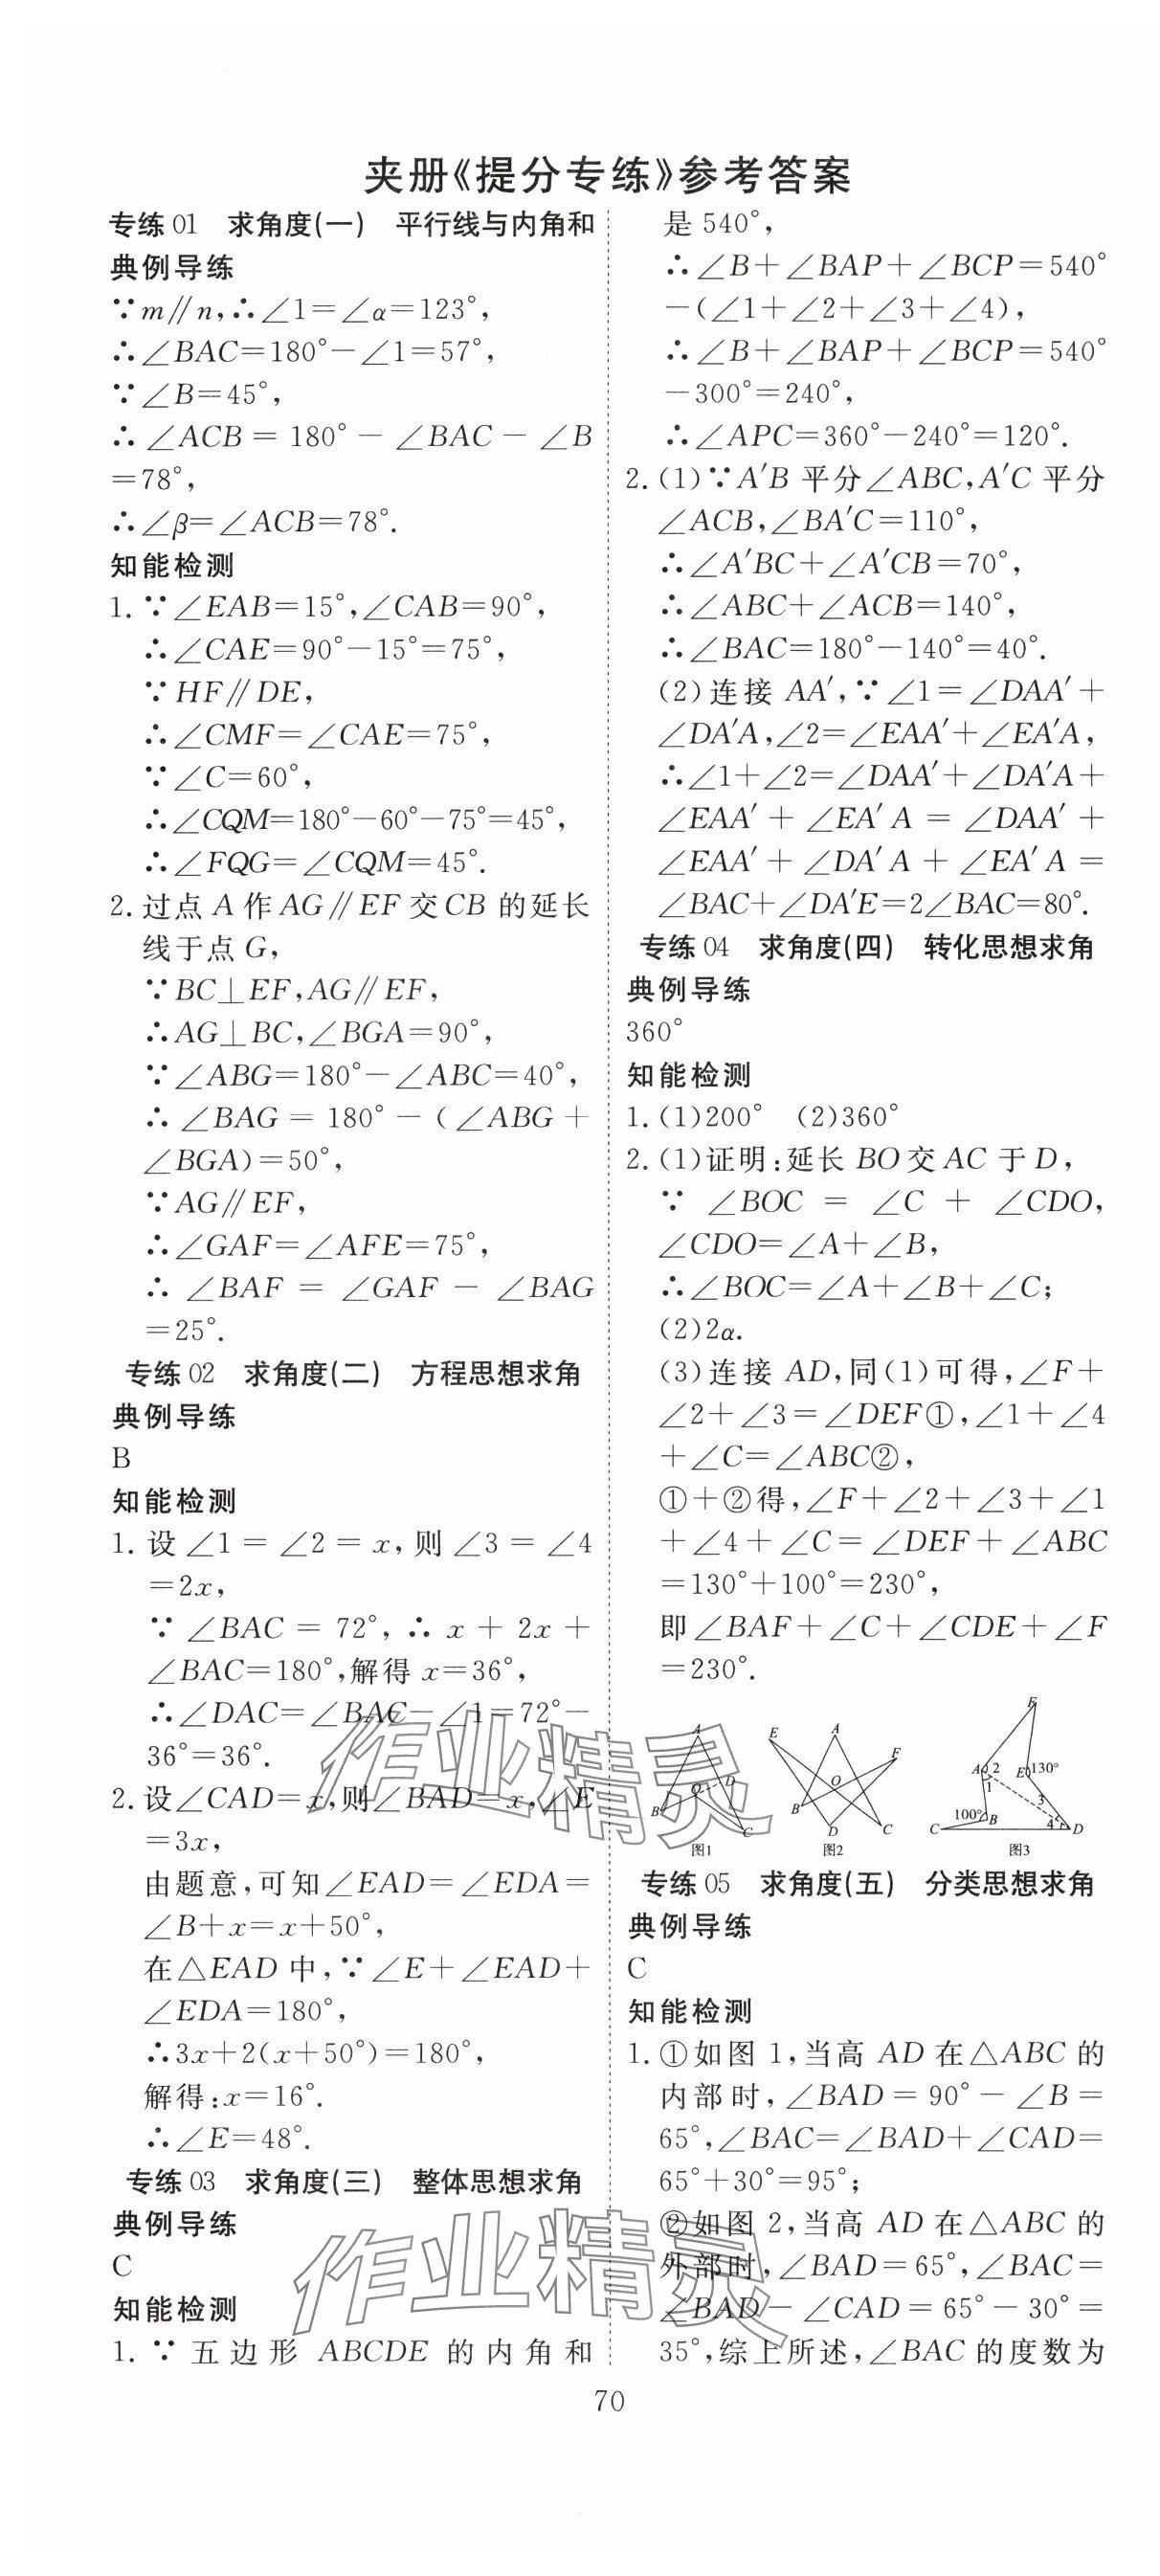 夹册《提分专练》参考答案
专练 01 求角度(一) 平行线与内角和
典例导练
∵m∥n,∴∠1=∠α=123°,
∴∠BAC=180°-∠1=57°,
∵∠B=45°,
∴∠ACB=180°-∠BAC-∠B
=78°,
∴∠β=∠ACB=78°.
知能检测
1. ∵∠EAB=15°,∠CAB=90°,
∴∠CAE=90°-15°=75°,
∵HF∥DE,
∴∠CMF=∠CAE=75°,
∵∠C=60°,
∴∠CQM=180°-60°-75°=45°,
∴∠FQG=∠CQM=45°.
2. 过点 A 作 AG∥EF 交 CB 的延长
线于点 G,
∵BC⊥EF,AG∥EF,
∴AG⊥BC,∠BGA=90°,
∵∠ABG=180°-∠ABC=40°,
∴∠BAG=180°-(∠ABG+
∠BGA)=50°,
∵AG∥EF,
∴∠GAF=∠AFE=75°,
∴∠BAF=∠GAF-∠BAG
=25°.
专练 02 求角度(二) 方程思想求角
典例导练
B
知能检测
1. 设∠1=∠2=x,则∠3=∠4
=2x,
∵∠BAC=72°,∴x+2x+
∠BAC=180°,解得 x=36°,
∴∠DAC=∠BAC-∠1=72°-
36°=36°.
2. 设∠CAD=x,则∠BAD=x,∠E
=3x,
由题意,可知∠EAD=∠EDA=
∠B+x=x+50°,
在△EAD 中,∵∠E+∠EAD+
∠EDA=180°,
∴3x+2(x+50°)=180°,
解得:x=16°.
∴∠E=48°.
专练 03 求角度(三) 整体思想求角
典例导练
C
知能检测
1. ∵五边形 ABCDE 的内角和
是 540°,
∴∠B+∠BAP+∠BCP=540°
-(∠1+∠2+∠3+∠4),
∴∠B+∠BAP+∠BCP=540°
-300°=240°,
∴∠APC=360°-240°=120°.
2. (1)∵A′B 平分∠ABC,A′C 平分
∠ACB,∠BA′C=110°,
∴∠A′BC+∠A′CB=70°,
∴∠ABC+∠ACB=140°,
∴∠BAC=180°-140°=40°.
(2)连接 AA′,∵∠1=∠DAA′+
∠DA′A,∠2=∠EAA′+∠EA′A,
∴∠1+∠2=∠DAA′+∠DA′A+
∠EAA′+∠EA′A=∠DAA′+
∠EAA′+∠DA′A+∠EA′A=
∠BAC+∠DA′E=2∠BAC=80°.
专练 04 求角度(四) 转化思想求角
典例导练
360°
知能检测
1. (1)200° (2)360°
2. (1)证明:延长 BO 交 AC 于 D,
∵∠BOC=∠C+∠CDO,
∠CDO=∠A+∠B,
∴∠BOC=∠A+∠B+∠C;
(2)2α.
(3)连接 AD,同(1)可得,∠F+
∠2+∠3=∠DEF①,∠1+∠4
+∠C=∠ABC②,
①+②得,∠F+∠2+∠3+∠1
+∠4+∠C=∠DEF+∠ABC
=130°+100°=230°,
即∠BAF+∠C+∠CDE+∠F
=230°.
A O D B C 图1
E A F O B D C 图2
F A 2 E 130° 1 3 100° B 4 C D 图3
专练 05 求角度(五) 分类思想求角
典例导练
C
知能检测
1. ①如图 1,当高 AD 在△ABC 的
内部时,∠BAD=90°-∠B=
65°,∠BAC=∠BAD+∠CAD=
65°+30°=95°;
②如图 2,当高 AD 在△ABC 的
外部时,∠BAD=65°,∠BAC=
∠BAD-∠CAD=65°-30°=
35°,综上所述,∠BAC 的度数为
70
作业精灵
作业精灵